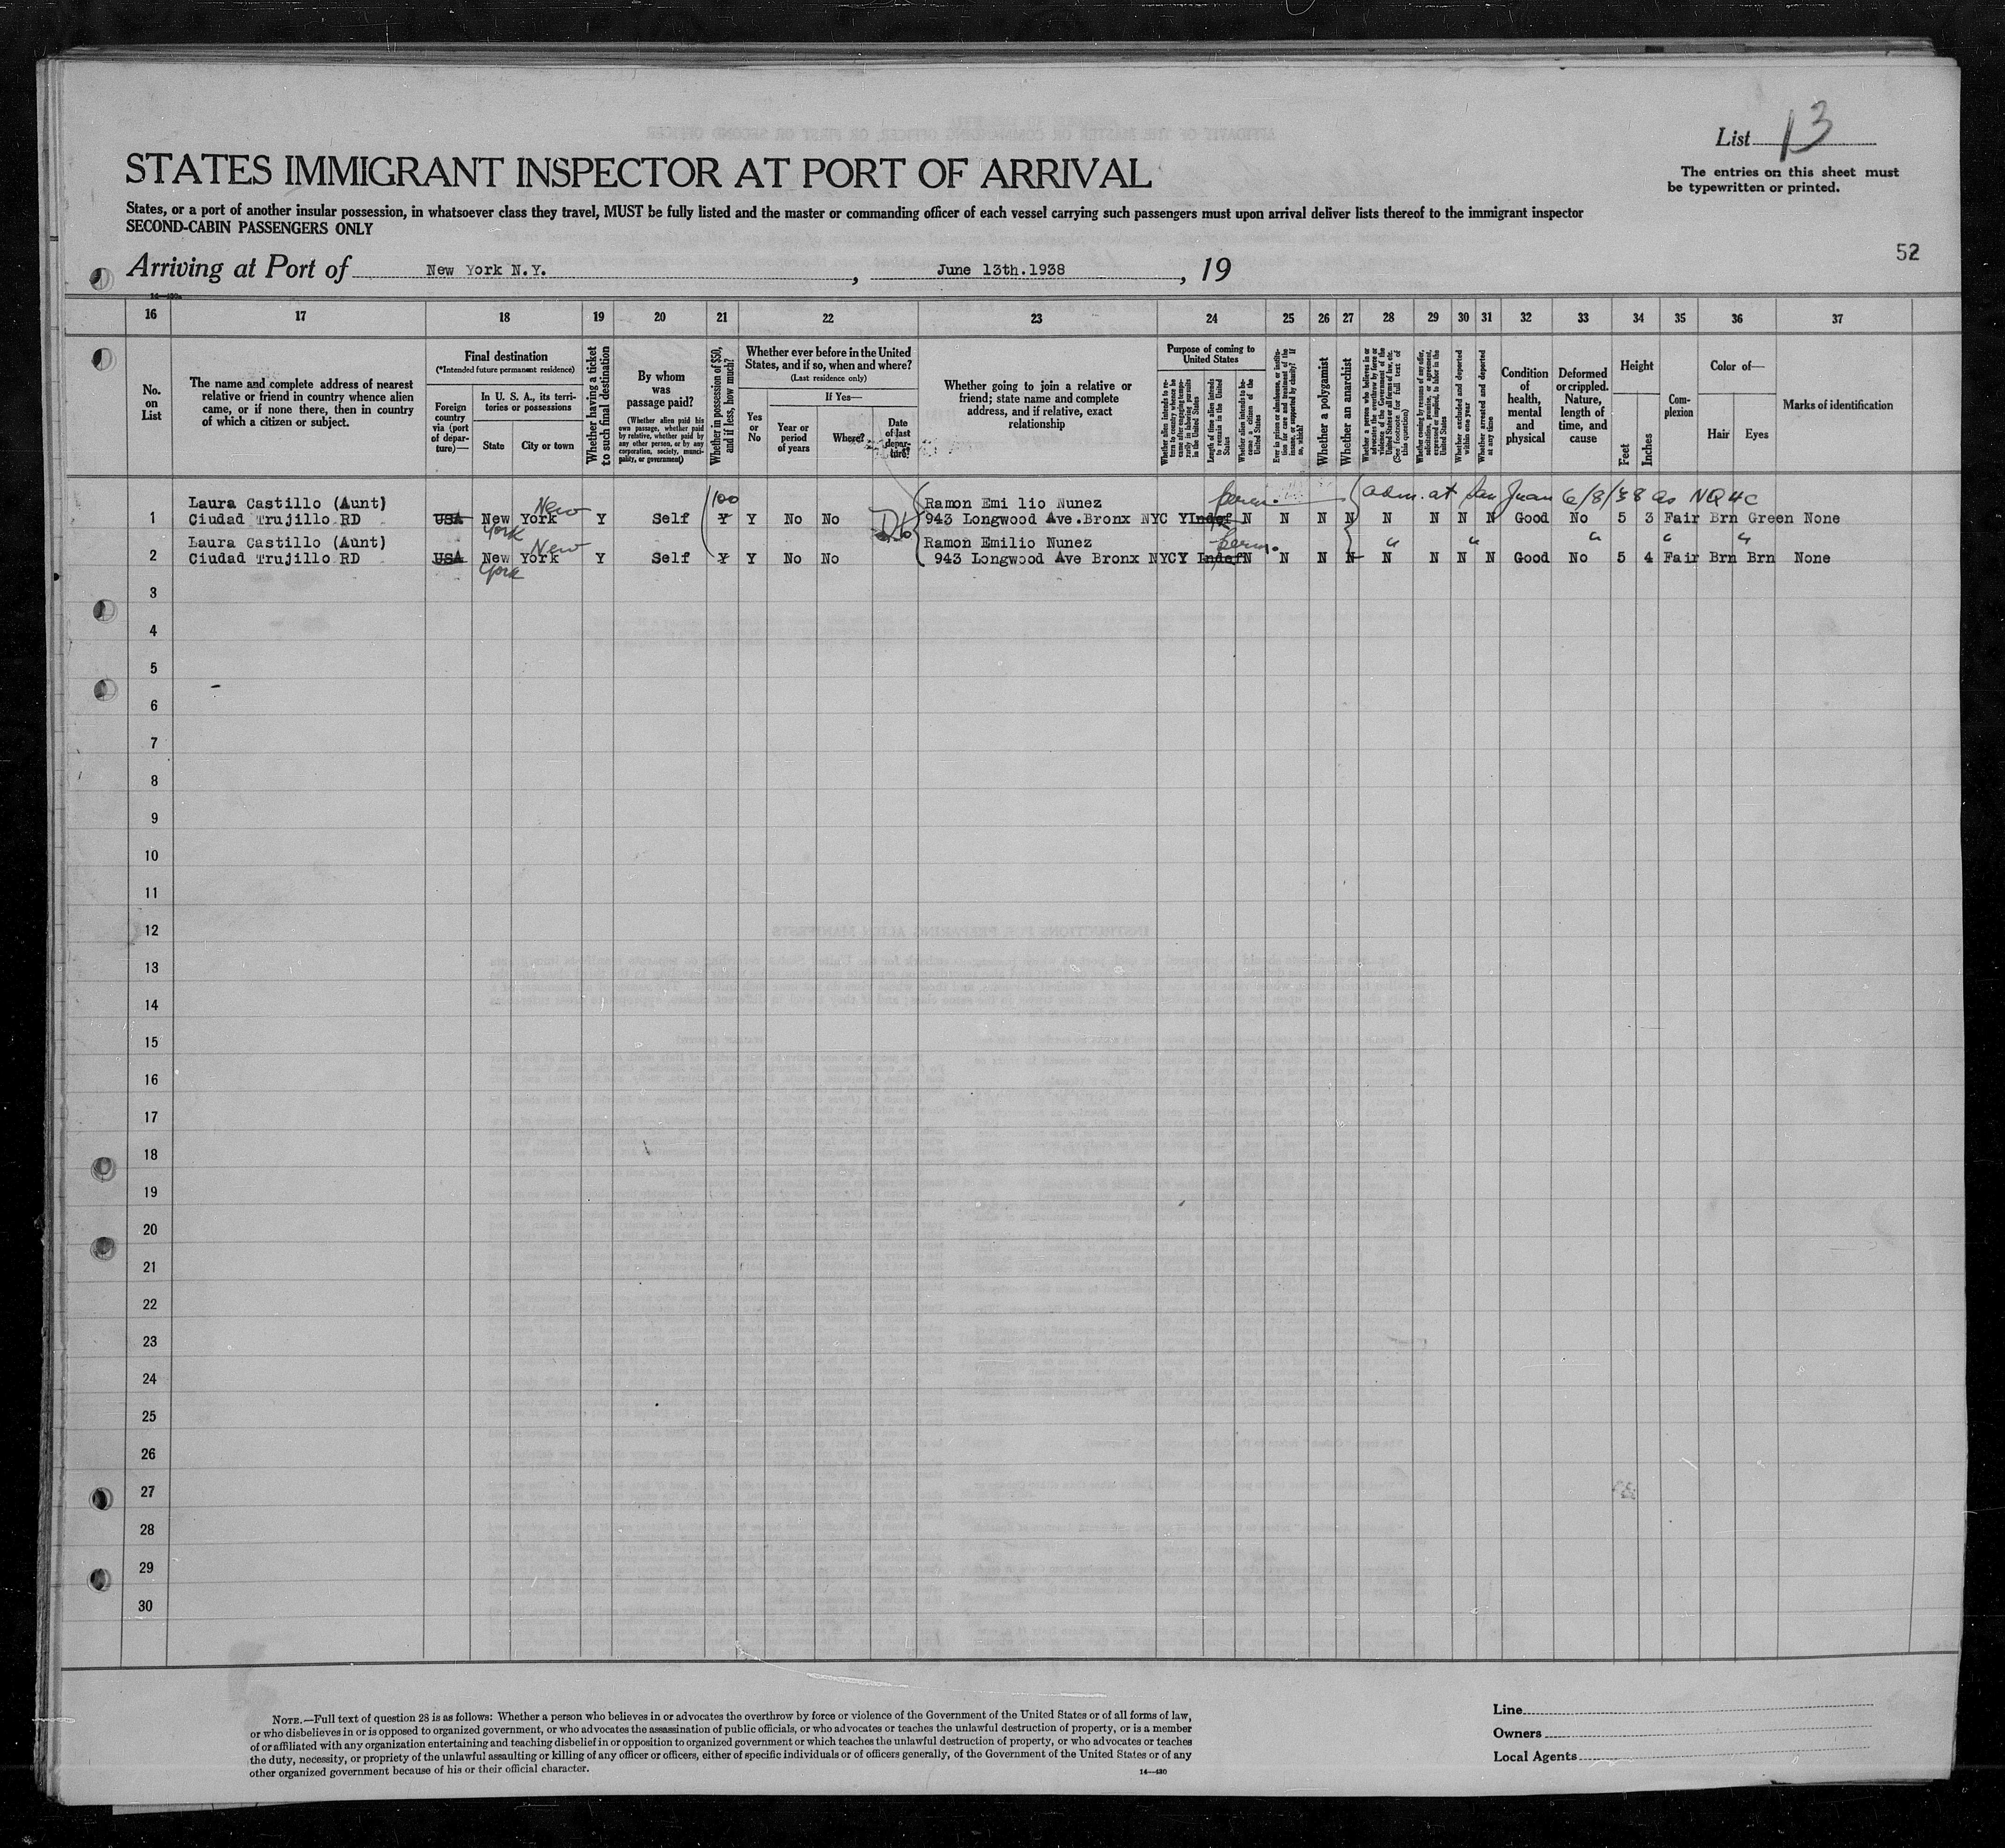 List 13
The entries on this sheet must
be typewritten or printed.
STATES IMMIGRANT INSPECTOR AT PORT OF ARRIVAL
States, or a port of another insular possession, in whatsoever class they travel, MUST be fully listed and the master or commanding officer of each vessel carrying such passengers must upon arrival deliver lists thereof to the immigrant inspector
SECOND-CABIN PASSENGERS ONLY
52
Arriving at Port of New York N.Y. , June 13th.1938 , 19
16 17 18 19 20 21 22 23 24 25 26 27 28 29 30 31 32 33 34 35 36 37
No. on List
The name and complete address of nearest
relative or friend in country whence alien
came, or if none there, then in country
of which a citizen or subject.
Final destination
(*Intended future permanent residence)
Foreign
country
via (port
of depar-
ture)—
In U. S. A., its terri-
tories or possessions
State
City or town
Whether having a ticket
to such final destination
By whom
was
passage paid?
(Whether alien paid his
own passage, whether paid
by relative, whether paid by
any other person, or by any
corporation, society, munici-
pality, or government)
Whether in possession of $50,
and if less, how much?
Whether ever before in the United
States, and if so, when and where?
(Last residence only)
Yes
or
No
If Yes—
Year or
period
of years
Where?
Date
of last
depar-
ture?
Whether going to join a relative or
friend; state name and complete
address, and if relative, exact
relationship
Purpose of coming to
United States
Whether alien intends to re-
turn to country whence he
came after engaging tempo-
rarily in laboring pursuits
in the United States
Length of time alien intends
to remain in the United
States
Whether alien intends to be-
come a citizen of the
United States
Ever in prison or almshouse, or institu-
tion for care and treatment of the
insane, or supported by charity? If
so, which?
Whether a polygamist
Whether an anarchist
Whether a person who believes in or
advocates the overthrow by force or
violence of the Government of the
United States or all forms of law, etc.
(See footnote for full text of
this question)
Whether coming by reasons of any offer,
solicitation, promise, or agreement,
expressed or implied, to labor in the
United States
Whether excluded and deported
within one year
Whether arrested and deported
at any time
Condition
of
health,
mental
and
physical
Deformed
or crippled.
Nature,
length of
time, and
cause
Height
Feet
Inches
Com-
plexion
Color of—
Hair
Eyes
Marks of identification
Laura Castillo (Aunt) New 100 Ramon Emi lio Nunez perm. adm. at San Juan 6/8/38 as NQ4c
1 Ciudad Trujillo RD USA New York Y Self Y Y No No 943 Longwood Ave.Bronx NYC Y Indef N N N N N N N N Good No 5 3 Fair Brn Green None
York
Laura Castillo (Aunt) New Ramon Emilio Nunez perm. " " " " "
2 Ciudad Trujillo RD USA New York Y Self Y Y No No 943 Longwood Ave Bronx NYCY Indef N N N N N N N N Good No 5 4 Fair Brn Brn None
York
3
4
5
6
7
8
9
10
11
12
13
14
15
16
17
18
19
20
21
22
23
24
25
26
27
28
29
30
NOTE.—Full text of question 28 is as follows: Whether a person who believes in or advocates the overthrow by force or violence of the Government of the United States or of all forms of law,
or who disbelieves in or is opposed to organized government, or who advocates the assassination of public officials, or who advocates or teaches the unlawful destruction of property, or is a member
of or affiliated with any organization entertaining and teaching disbelief in or opposition to organized government or which teaches the unlawful destruction of property, or who advocates or teaches
the duty, necessity, or propriety of the unlawful assaulting or killing of any officer or officers, either of specific individuals or of officers generally, of the Government of the United States or of any
other organized government because of his or their official character.
14—430
Line
Owners
Local Agents